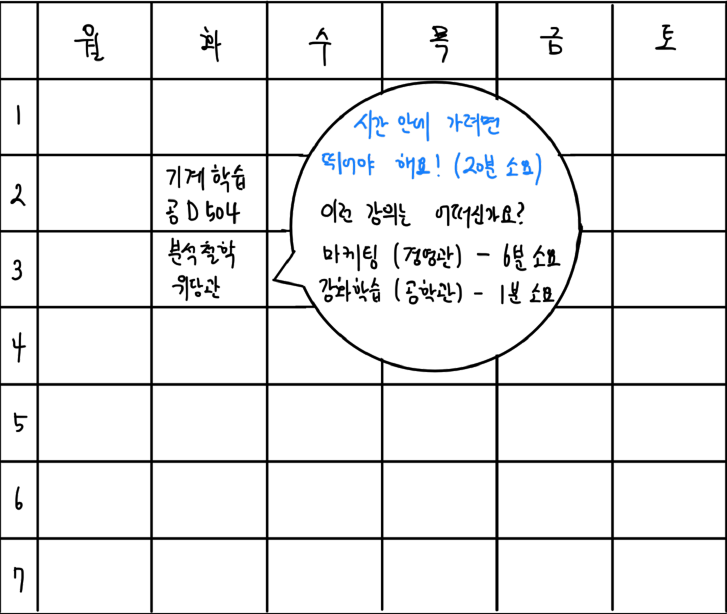 월 화 수 목 금 토
1
2
기계 학습
공 D 504
3
분석철학
위당관
시간 안에 가려면
뛰어야 해요! (20분 소요)
이런 강의는 어떠신가요?
마케팅 (경영관) - 6분 소요
강화학습 (공학관) - 1분 소요
4
5
6
7